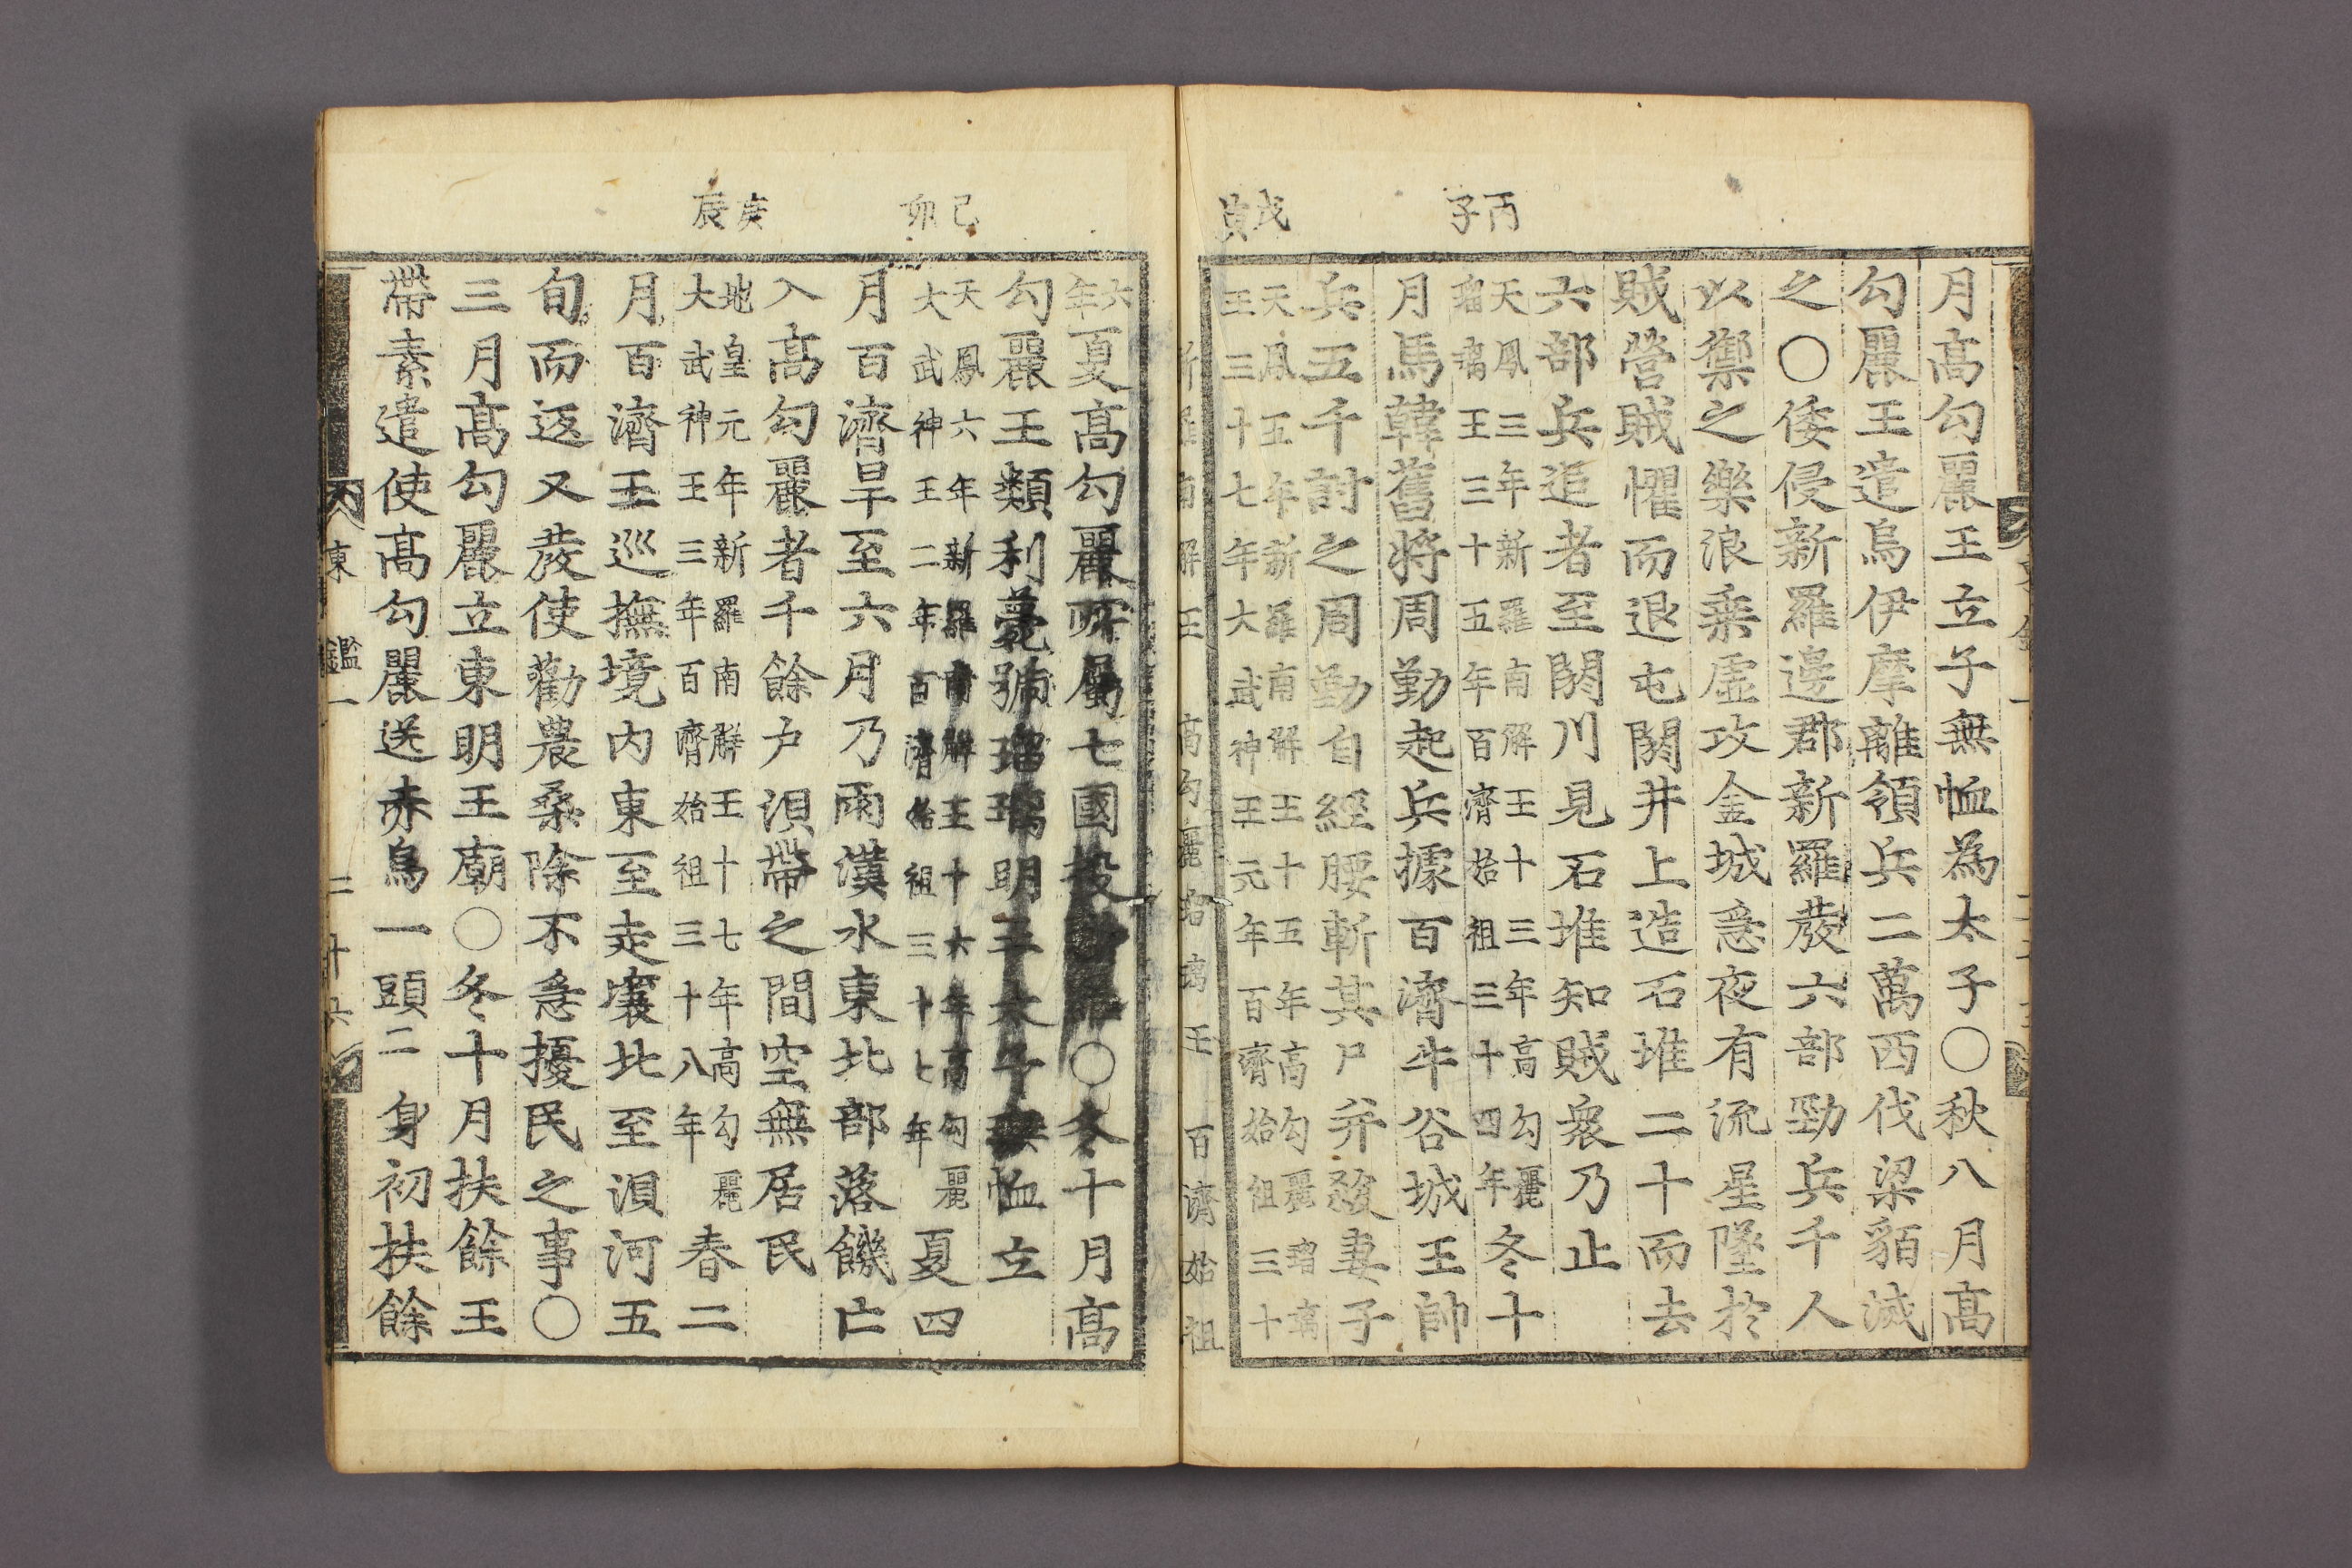 丙子
戊寅
月高勾麗王立子無恤為太子○秋八月高
勾麗王遣烏伊摩離領兵二萬西伐梁貊滅
之○倭侵新羅邊郡新羅發六部勁兵千人
以禦之樂浪乗虛攻金城急夜有流星墜於
賊營賊懼而退屯閼井上造石堆二十而去
六部兵追者至閼川見石堆知賊衆乃止
天鳳三年新羅南解王十三年高勾麗
瑠璃王三十五年百濟始祖三十四年冬十
月馬韓舊將周勤起兵據百濟牛谷城王帥
兵五千討之周勤自經腰斬其尸并殺妻子
天鳳五年新羅南解王十五年高勾麗瑠璃
王三十七年大武神王元年百濟始祖三十
新羅南解王 高勾麗瑠璃王 百濟始祖
己卯
庚辰
六年夏高勾麗所屬七國投○冬十月高
勾麗王類利薨號瑠璃明王太子無恤立
天鳳六年新羅南解王十六年高勾麗
大武神王二年百濟始祖三十七年夏四
月百濟旱至六月乃雨漢水東北部落饑亡
入高勾麗者千餘户浿帶之間空無居民
地皇元年新羅南解王十七年高勾麗
大武神王三年百濟始祖三十八年春二
月百濟王巡撫境内東至走壤北至浿河五
旬而返又發使勸農桑除不急擾民之事○
三月高勾麗立東明王廟○冬十月扶餘王
帶素遣使高勾麗送赤烏一頭二身初扶餘
東鑑一 二十六